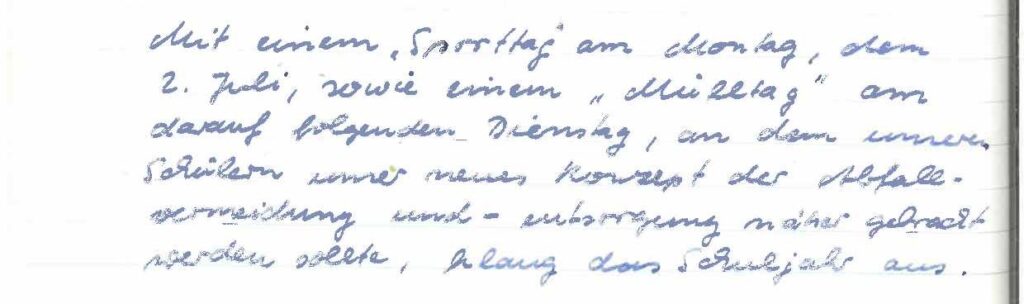 Mit einem „Sporttag" am Montag, dem
2. Juli, sowie einem „Mülltag" am
darauf folgenden Dienstag, an dem unseren
Schülern unser neues Konzept der Abfall-
vermeidung und - entsorgung näher gebracht
werden sollte, klang das Schuljahr aus.